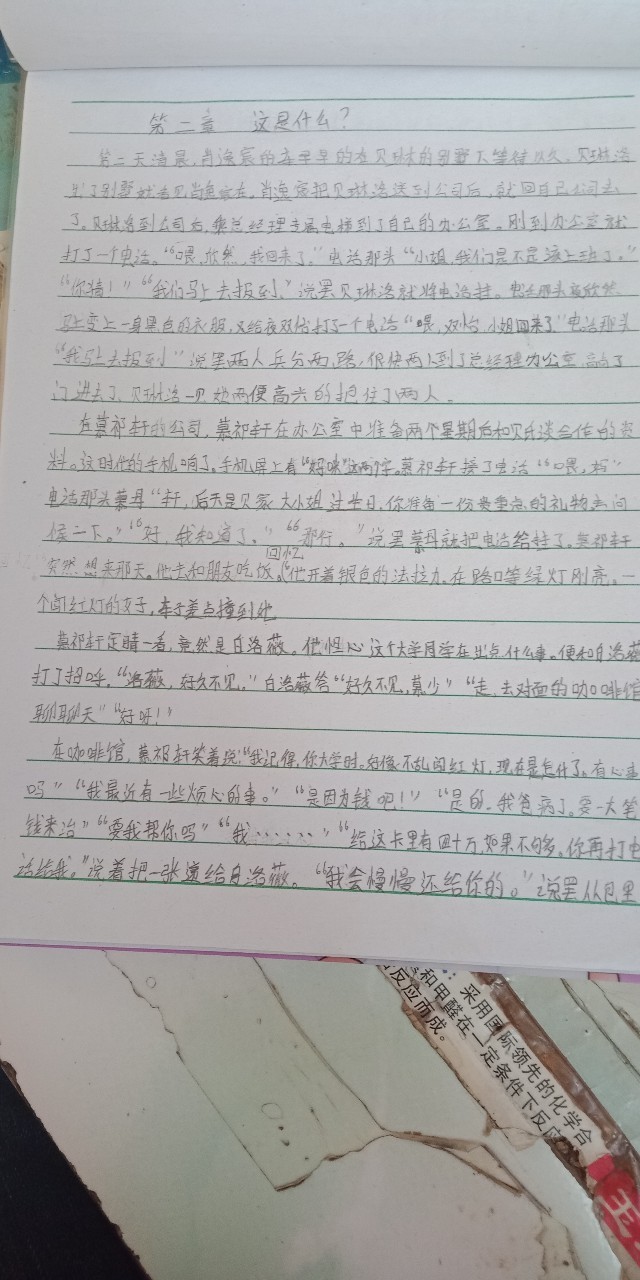 第二章 这是什么？
第二天清晨,肖逸宸的车早早的在贝琳的别墅下等待以久。贝琳洛
到了别墅就看见肖逸宸在,肖逸宸把贝琳洛送到公司后,就回自己公司去
了。贝琳洛到公司后,乘总经理专属电梯到了自己的办公室。刚到办公室就
打了一个电话。“喂,欣然,我回来了。”电话那头“小姐,我们是不是该上班了。”
“你猜！”“我们马上去报到。”说罢贝琳洛就将电话挂。电话那头 欣然
马上变上一身黑色的衣服,又给夜双怡打了一个电话“喂,双怡,小姐回来了”电话那头
“我马上去报到”说罢两人兵分两,路,很快两人到了总经理办公室,敲了
门进去了,贝琳洛一见她两便高兴的抱住了两人。
在慕祁轩的公司,慕祁轩在办公室中准备两个星期后和贝氏谈合作的资
料。这时他的手机响了。手机屏上有“妈咪”这两字。慕祁轩接了电话“喂,妈”
电话那头慕母“轩,后天是贝家大小姐过生日,你准备一份贵重点的礼物去问
候一下。”“好,我知道了。”“那行。”说罢慕母就把电话给挂了。慕祁轩
突然想来那天。他去和朋友吃饭。(回忆)他开着银色的法拉力,在路口等绿灯刚亮。一
个闯红灯的女子,车子差点撞到她
慕祁轩定睛一看,竟然是白洛薇。他怛心这个大学同学在出点什么事。便和白洛薇
打了招呼。“洛薇,好久不见。”白洛薇答“好久不见,慕少”“走,去对面的咖啡馆
聊聊天”“好呀！”
在咖啡馆,慕祁轩笑着说：“我记得,你大学时,好像不乱闯红灯,现在是怎什了,有心事
吗”“我最近有一些烦心的事。”“是因为钱吧！”“是的,我爸病了。要一大笔
钱来治”“要我帮你吗”“我……”“给这卡里有四十万,如果不够多,你再打电
话给我。”说着把一张递给白洛薇。“我会慢慢还给你的。”说罢从包里
采用国际领先的化学合
和甲醛在一定条件下反应
反应而成。